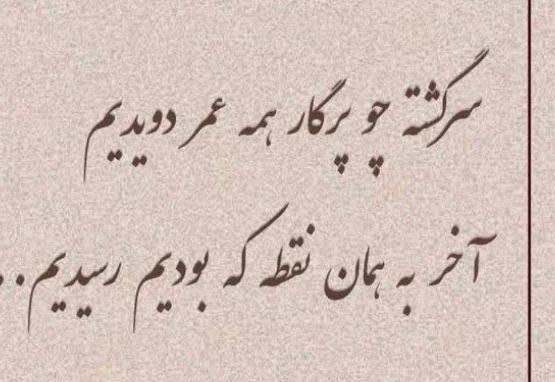 سرگشته چو پرگار همه عمر دویدیم
آخر به همان نقطه که بودیم رسیدیم..